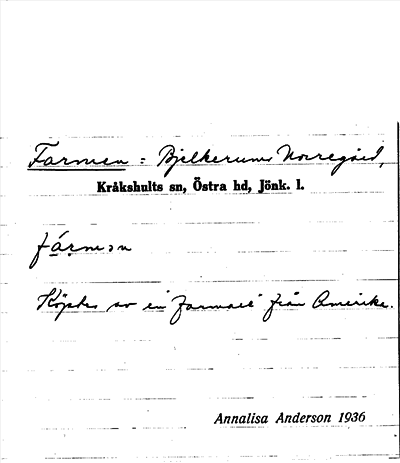 Farmen : Bjelkerums Norregård,
Kråkshults sn, Östra hd, Jönk. l.
fármən
Köptes av en "farmare" från Amerika.
Annalisa Anderson 1936